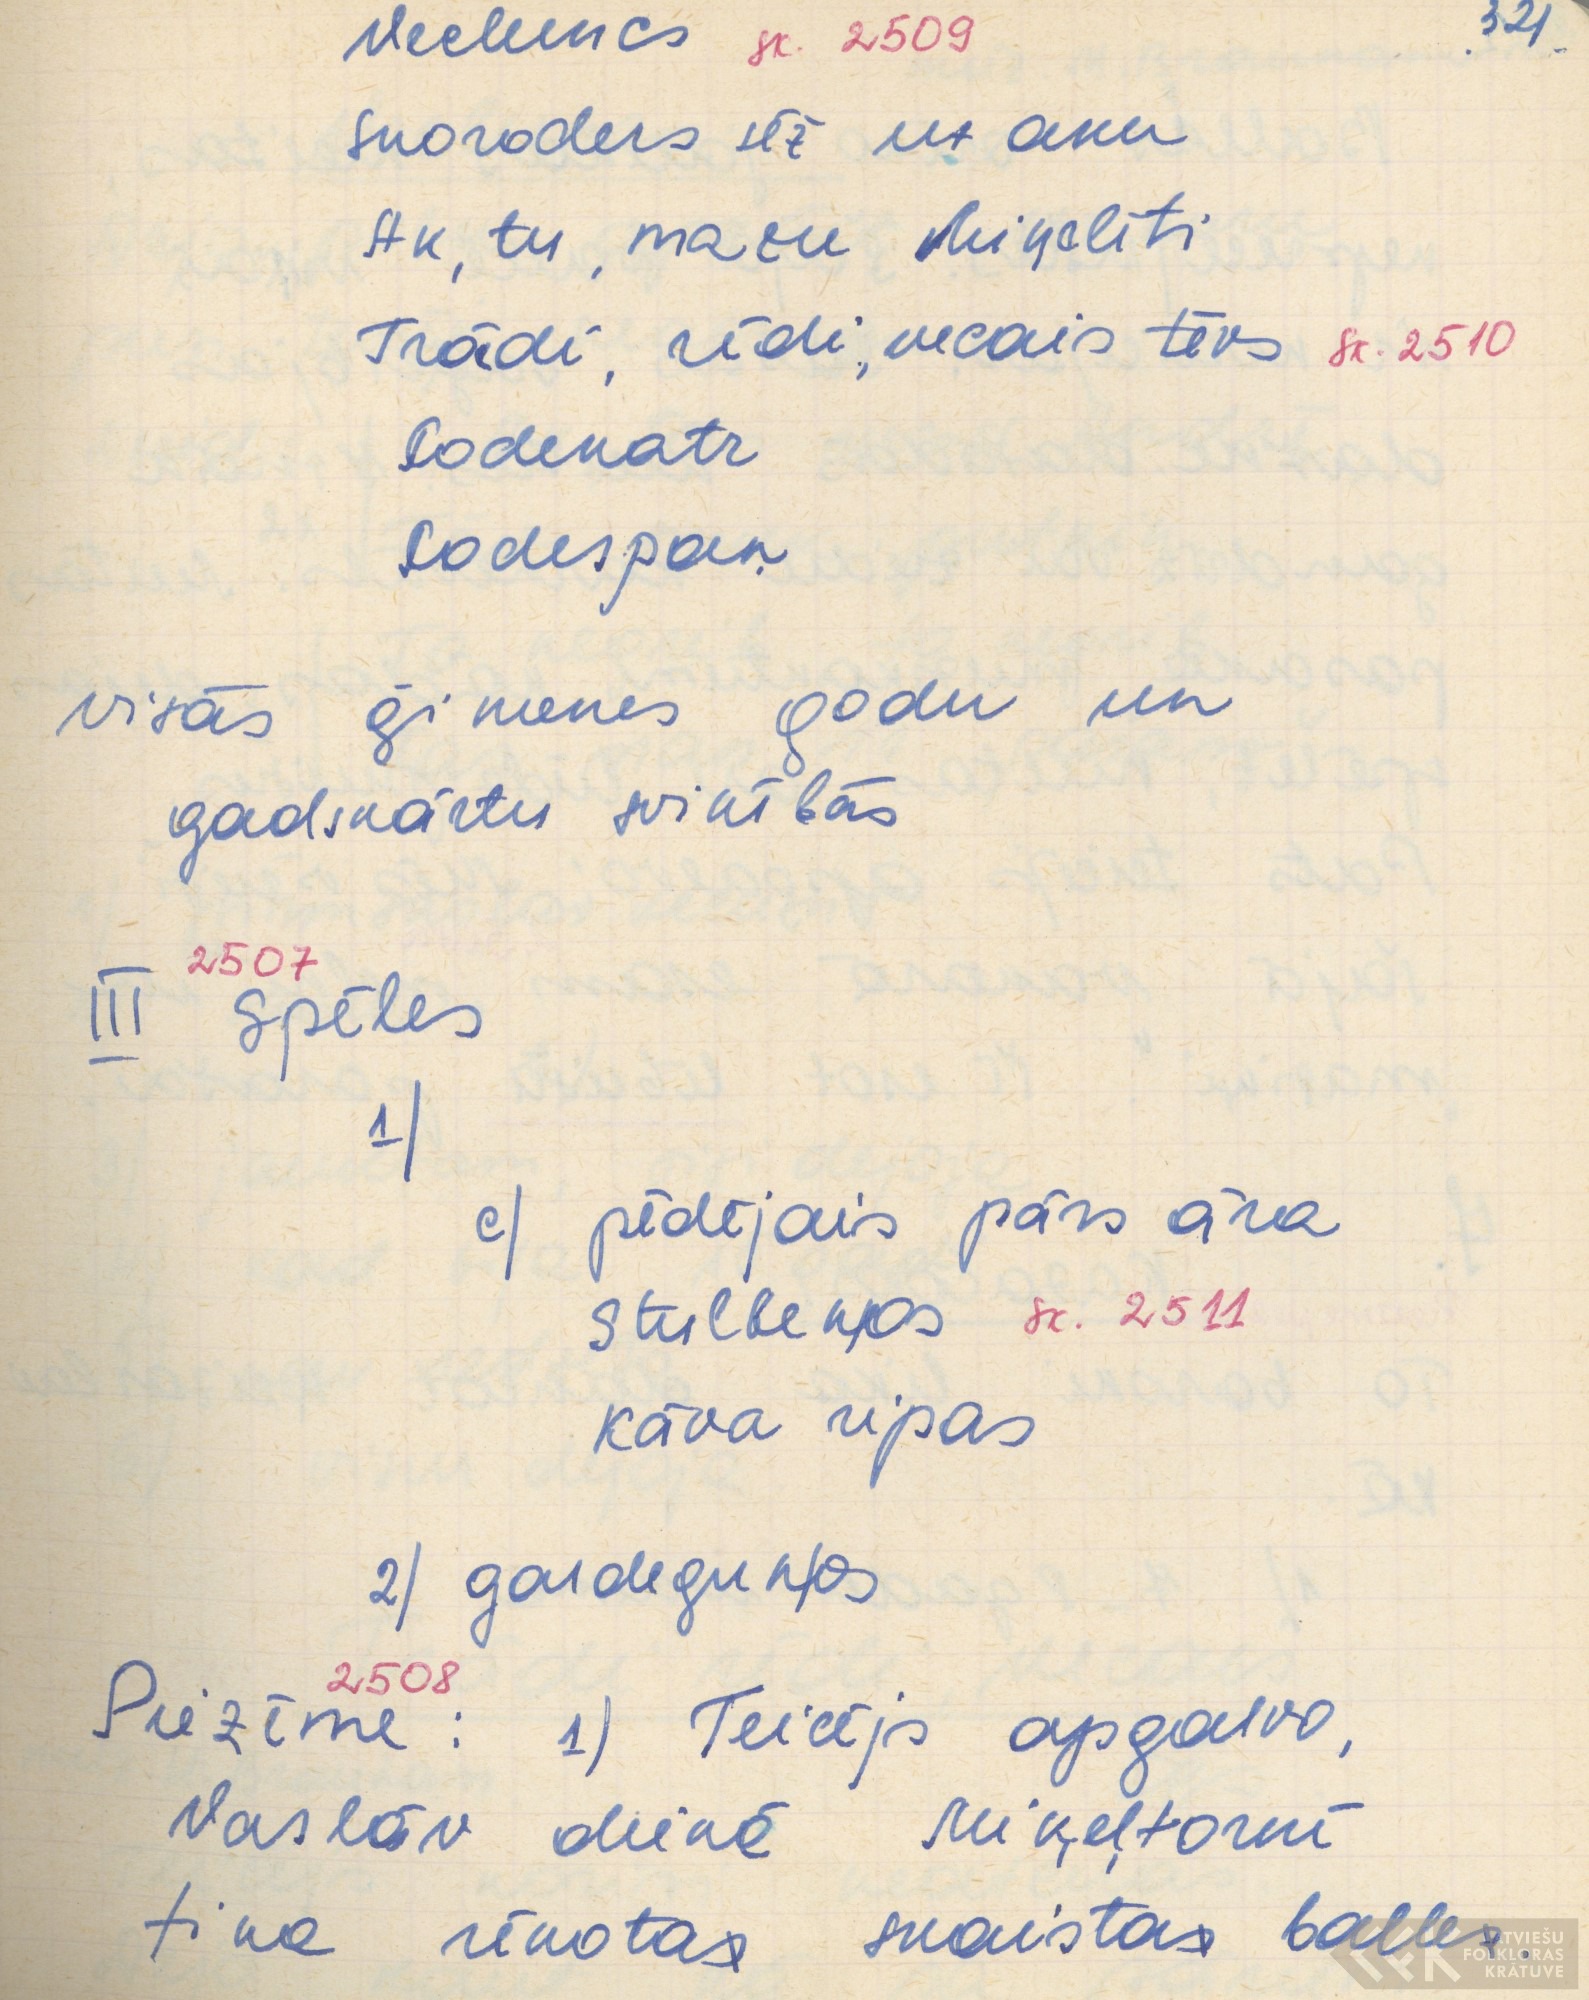 321.
Veclencs sk. 2509
Skoroders sēž uz aku
Ak, tu, mazu Miķelīti
Trādi, rīdi, vecais tēvs sk. 2510
Podekatr
Podespaņ
visās ģimenes godu un
gadskārtu svinībās
2507
III Spēles
1)
c) pēdējais pārs āra
Stulbeņos sk. 2511
Kāva ripas
2) gaudeguņos
2508
Piezīme: 1) Teicējs apgalvo,
Vaslāv dienē Miķeļtornī
tika rīkotas skaistas balles.
LATVIEŠU
FOLKLORAS
KRĀTUVE